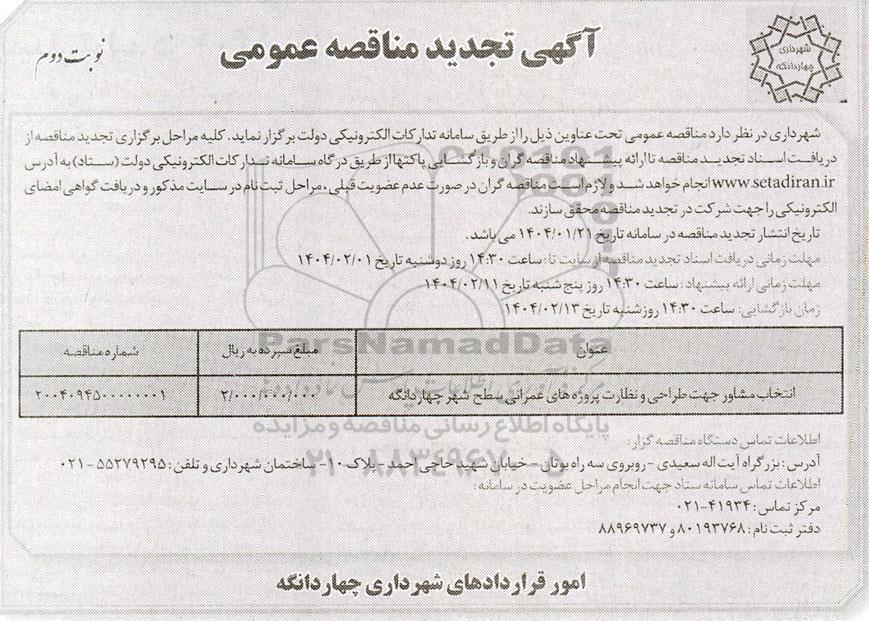 آگهی تجدید مناقصه عمومی
نوبت دوم
شهرداری
چهاردانگه
شهرداری در نظر دارد مناقصه عمومی تحت عناوین ذیل را از طریق سامانه تدارکات الکترونیکی دولت برگزار نماید. کلیه مراحل برگزاری تجدید مناقصه از
دریافت اسناد تجدید مناقصه تا ارائه پیشنهاد مناقصه گران و بازگشایی پاکتها از طریق درگاه سامانه تدارکات الکترونیکی دولت (ستاد) به آدرس
www.setadiran.ir انجام خواهد شد و لازم است مناقصه گران در صورت عدم عضویت قبلی، مراحل ثبت نام در سایت مذکور و دریافت گواهی امضای
الکترونیکی را جهت شرکت در تجدید مناقصه محقق سازند.
تاریخ انتشار تجدید مناقصه در سامانه تاریخ ۱۴۰۴/۰۱/۲۱ می باشد.
مهلت زمانی دریافت اسناد تجدید مناقصه از سایت تا: ساعت ۱۴:۳۰ روز دوشنبه تاریخ ۱۴۰۴/۰۲/۰۱
مهلت زمانی ارائه پیشنهاد: ساعت ۱۴:۳۰ روز پنج شنبه تاریخ ۱۴۰۴/۰۲/۱۱
زمان بازگشایی: ساعت ۱۴:۳۰ روز شنبه تاریخ ۱۴۰۴/۰۲/۱۳
ParsNamadData
عنوان مبلغ سپرده به ریال شماره مناقصه
انتخاب مشاور جهت طراحی و نظارت پروژه های عمرانی سطح شهر چهاردانگه ۲/۰۰۰/۰۰۰/۰۰۰ ۲۰۰۴۰۹۴۵۰۰۰۰۰۰۰۱
پایگاه اطلاع رسانی مناقصه و مزایده
اطلاعات تماس دستگاه مناقصه گزار:
آدرس: بزرگراه آیت اله سعیدی - روبروی سه راه بوتان - خیابان شهید حاجی احمد - پلاک ۱۰ - ساختمان شهرداری و تلفن: ۵۵۲۷۹۲۹۵-۰۲۱
اطلاعات تماس سامانه ستاد جهت انجام مراحل عضویت در سامانه:
مرکز تماس: ۴۱۹۳۴-۰۲۱
دفتر ثبت نام: ۸۰۱۹۳۷۶۸ و ۸۸۹۶۹۷۳۷
امور قراردادهای شهرداری چهاردانگه